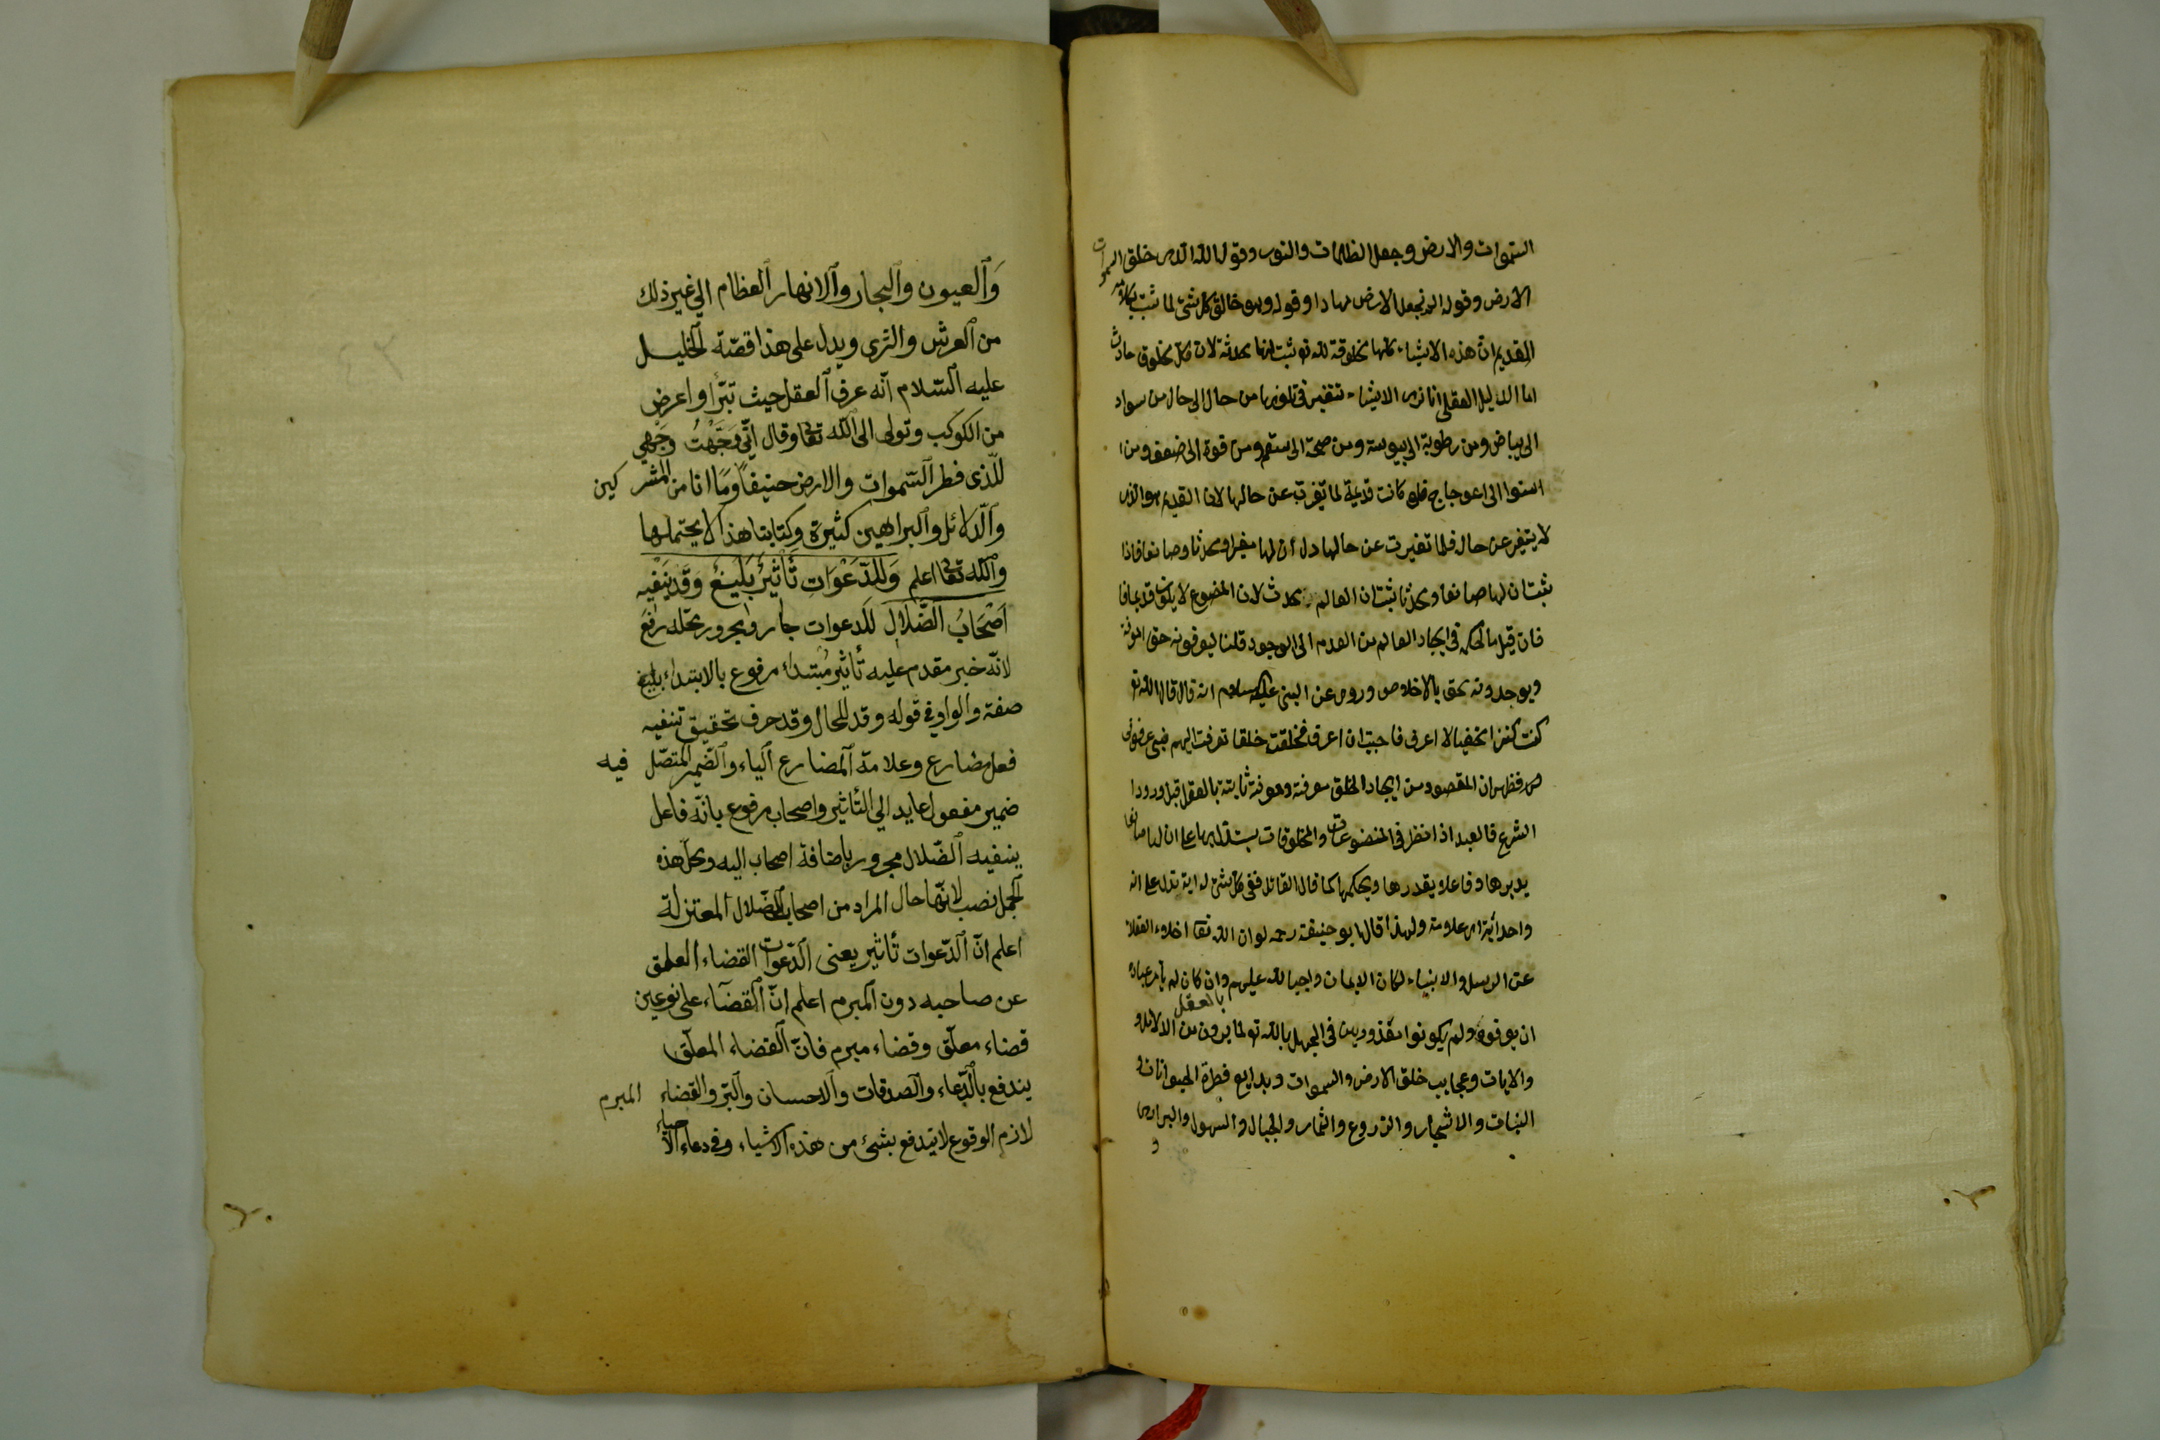 السموات والارض وجعل الظلمات والنور وقوله الله الذى خلق السموات
الارض وقوله الم نجعل الارض مهادا وقوله وهو خالق كل شئ لما ثبت بكلامه
القديم ان هذه الاشياء كلها مخلوقة لله تع ثبت انها محدثة لان كل مخلوق حادث
اما الدليل العقلى انا نرى الاشياء تتغير فى تلونها من حال الى حال من سواد
الى بياض ومن رطوبة الى يبوسة ومن صحة الى سقم ومن قوة الى ضعف ومن ا
استوا الى اعوجاج فلو كانت قديمة لما تغيرت عن حالها لان القديم هو الذى
لا يتغير عن حاله فلما تغيرت عن حالها دل ان لها مغيرا ومحدثا وصانعا فاذا
ثبت ان لها صانعا ومحدثا ثبت ان العالم محدث لان المصنوع لا يكون قديما فا
فان قيل ما الحكمة فى ايجاد العالم من العدم الى الوجود قلنا ليعرفونه حق المعرفة
ويوحدونه بحق بالاخلاص وروى عن النبى عليه السلام انه قال قال الله تع
كنت كنزا مخفيا لا اعرف فاحببت ان اعرف فخلقت خلقا تعرفت اليهم فبى عرفونى
فظهر ان المقصود من ايجاد الخلق معرفة ومعرفة ثابتة بالعقل قبل ورود ا
الشرع فالعبد اذا نظر فى المصنوعات والمخلوقات يستدل بها على ان لها صانعا
يدبرها وفاعلا يقدرها ويحكمها كما قال القائل ففى كل شئ له اية تدل على انه
واحد اية اى علامة ولهذا قال ابو حنيفة رحمه لو ان الله تعا اخلاء العقلا
عن الرسل والانبياء لكان الايمان واجبا لله عليهم وان كان له يامر عباده
ان يعرفوه ولم يكونوا معذورين فى الجهل بالله تع لما يرون من الدلايل و
بالعقل
والايات وعجايب خلق الارض والسموات وبدايع فطرة الحيوانات و
النبات والاشجار والزروع والثمار والجبال والسهول والبرارى
و
وَالعيون والبحار والانهار العظام الي غير ذلك
من العرش والثري ويدل على هذا قصّة الخليل
عليه السّلام انّه عرف العقل حيث تبرّأ واعرض
من الكوكب وتولى الى اللّه تعا وقال انّي وَجَّهْتُ وَجْهي
للّذى فطر السّموات والارض حنيفًا ومَا انا من المشركين
والدّلائل والبراهين كثيرة وكتابنا هذا لا يحتملها
واللّه تعا اعلم وَللدَّعَوَاتِ تَأثيرٌ بَليغٌ وَقَد يَنفيه
اَصْحَابُ الضَّلالِ للدعوات جار ومجرور محلّه رفع
لانّه خبر مقدم عليه تأثير مُبْتداء مرفوع بالابتداء بليغ
صفة والواو في قوله وقد للحال وقد حرف تحقيق تنفيه
فعل مضارع وعلامة المضارع الياء والضّمير المتصّل فيه
ضمير مفعول عايد الي التّأثير واصحاب مرفوع بانّه فاعل
ينفيه الضّلال مجرور باضافة اصحاب اليه ومحلّ هذه
الجمل نصب لانّها حال المراد من اصحاب الضّلال المعتزلة
اعلم انّ الدّعوات تأثير يعنى الدّعوات القضاء المعلق
عن صاحبه دون المبرم اعلم انّ القضآء على نوعين
قضاء معلّق وقضاء مبرم فانّ القضاء المعلّق
يندفع بالدّعاء والصدقات والاحسان والبرّ والقضاء المبرم
لازم الوقوع لا يندفع بشئ من هذه الاشياء وفى دعاء الاحياء